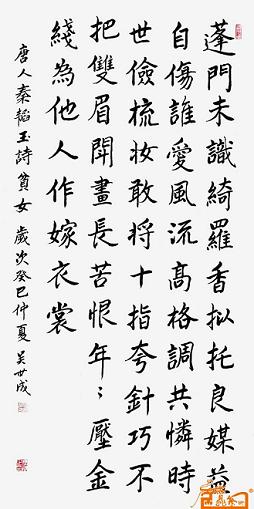 蓬門未識綺羅香拟托良媒益
自傷誰愛風流高格調共憐時
世儉梳妆敢将十指夸針巧不
把雙眉鬥畫長苦恨年〻壓金
綫為他人作嫁衣裳
唐人秦韜玉詩貧女 歲次癸巳仲夏 吴世成